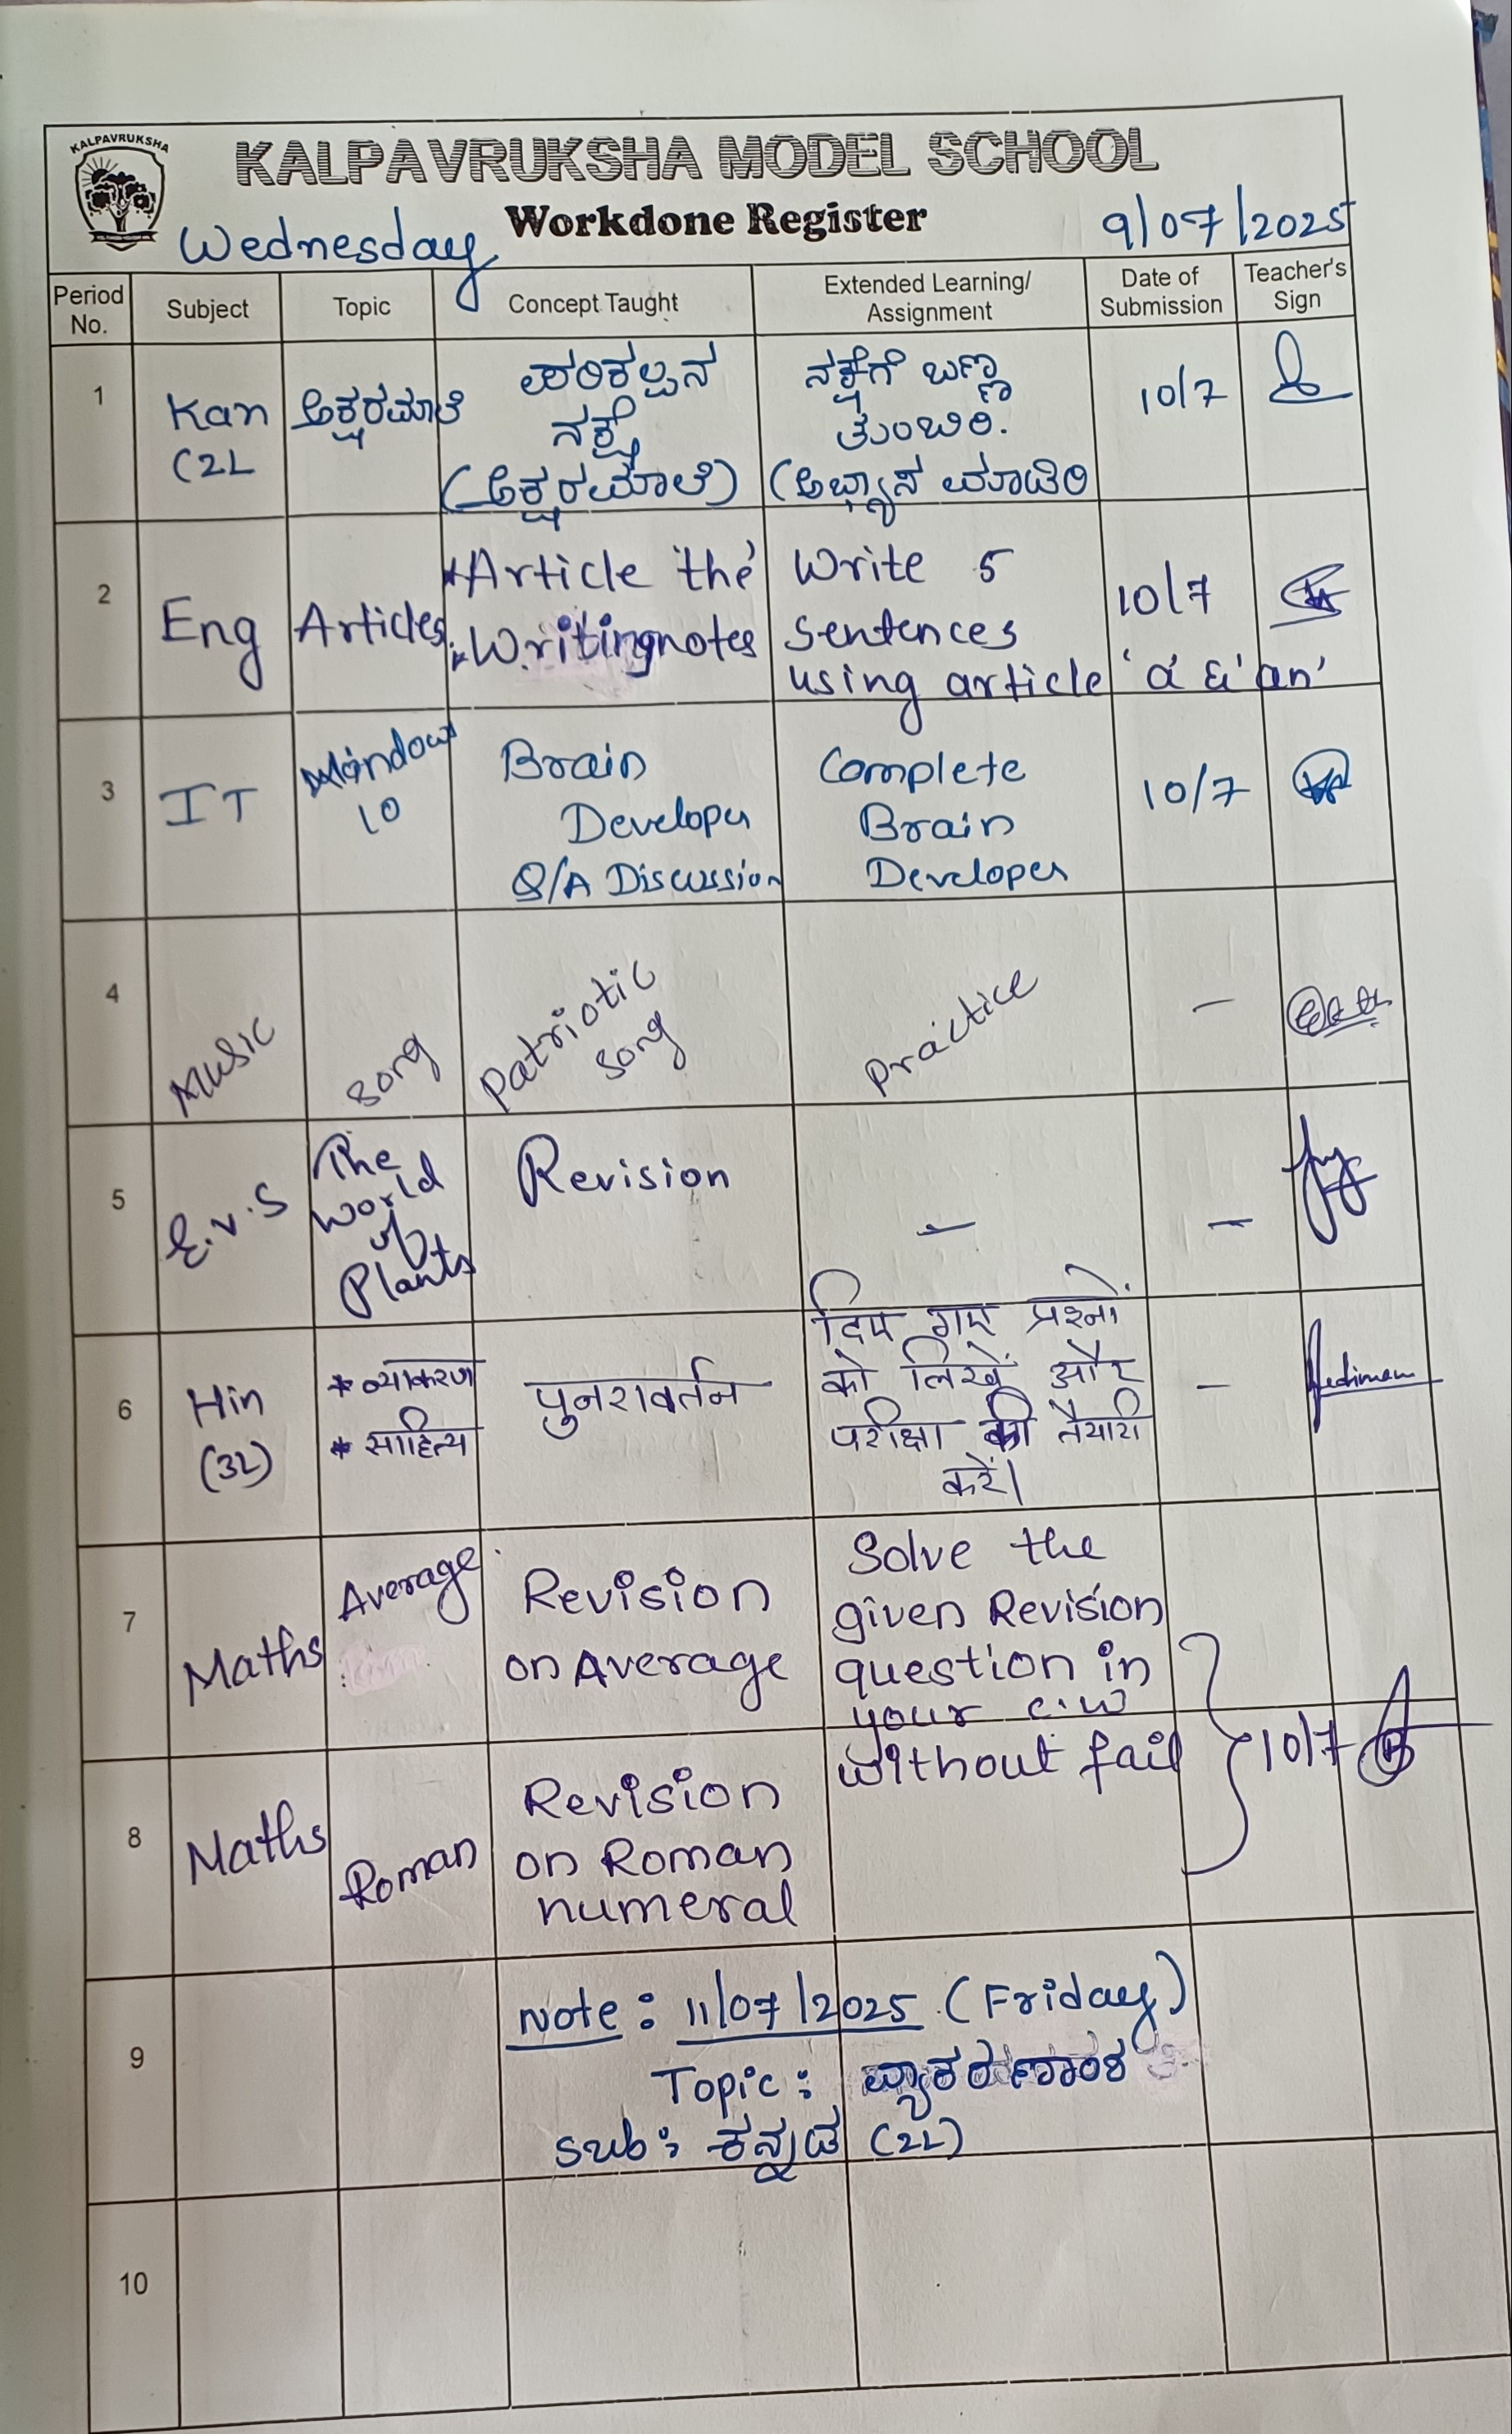 KALPAVRUKSHA
KALPAVRUKSHA MODEL SCHOOL
Workdone Register
Wednesday
9/07/2025
Period No.
Subject
Topic
Concept Taught
Extended Learning/ Assignment
Date of Submission
Teacher's Sign
1
Kan
(2L
ಅಕ್ಷರಮಾಲೆ
ಪರಿಕಲ್ಪನ
ನಕ್ಷೆ
(ಅಕ್ಷರಮಾಲೆ)
ನಕ್ಷೆಗೆ ಬಣ್ಣ
ತುಂಬಿರಿ.
(ಅಭ್ಯಾಸ ಮಾಡಿರಿ
10/7
2
Eng
Articles
*Article 'the'
*Writing notes
Write 5
sentences
using article 'a' & 'an'
10/7
3
IT
Window
10
Brain
Developer
Q/A Discussion
Complete
Brain
Developer
10/7
4
Music
song
Patriotic
song
Practice
–
5
E.V.S
The
World
of
Plants
Revision
–
–
6
Hin
(3L)
* व्याकरण
* साहित्य
पुनरावर्तन
दिए गए प्रश्नों
को लिखें और
परीक्षा की तैयारी
करें।
–
7
Maths
Average
Revision
on Average
Solve the
given Revision
question in
your c.w
without fail
10/7
8
Maths
Roman
Revision
on Roman
numeral
9
Note: 11/07/2025 (Friday)
Topic: ವ್ಯಾಕರಣಾಂಶ
Sub: ಕನ್ನಡ (2L)
10